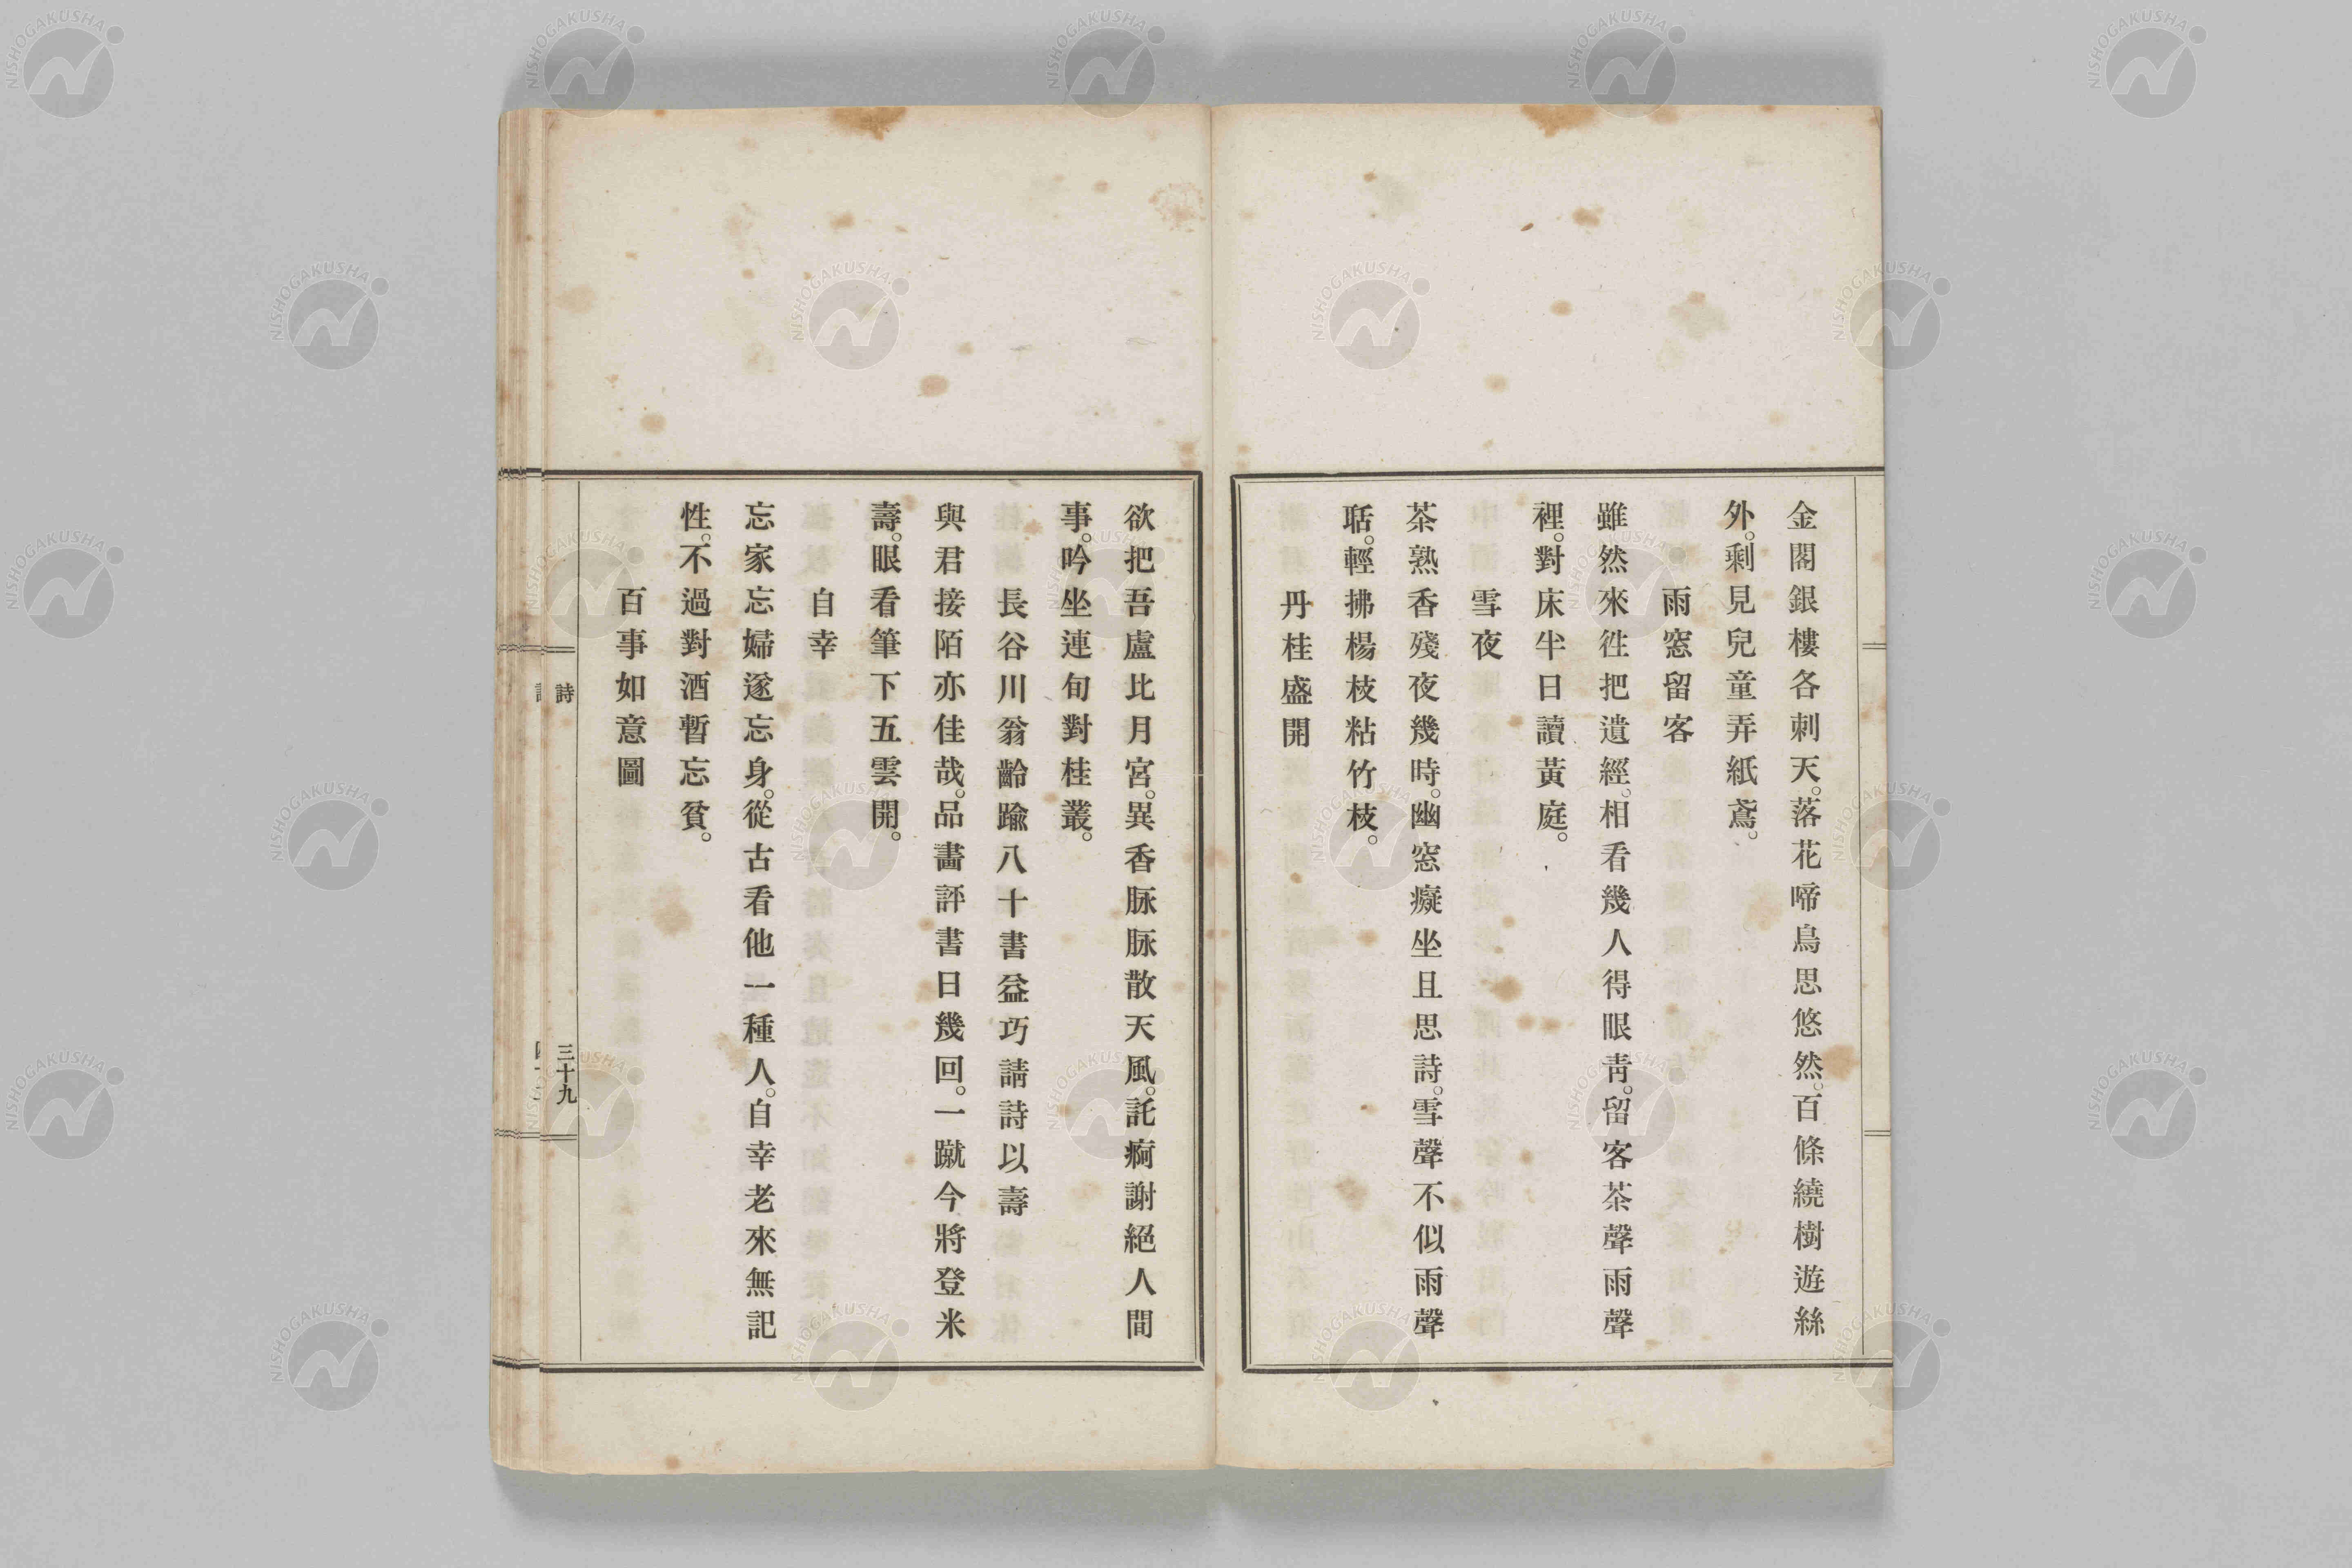 金閣銀樓各刺天。落花啼鳥思悠然。百條繞樹遊絲
外。剩見兒童弄紙鳶。
雨窓留客
雖然來徃把遺經。相看幾人得眼靑。留客茶聲雨聲
裡。對床半日讀黃庭。
雪夜
茶熟香殘夜幾時。幽窓癡坐且思詩。雪聲不似雨聲
聒。輕拂楊枝粘竹枝。
丹桂盛開
欲把吾廬比月宮。異香脉脉散天風。託痾謝絕人間
事。吟坐連旬對桂叢。
長谷川翁齡踰八十書益巧請詩以壽
與君接陌亦佳哉。品畵評書日幾回。一蹴今將登米
壽。眼看筆下五雲開。
自幸
忘家忘婦遂忘身。從古看他一種人。自幸老來無記
性。不過對酒暫忘貧。
百事如意圖
詩
三十九
NISHOGAKUSHA